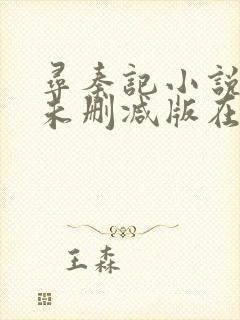 尋秦記小説
未刪减版在
王森